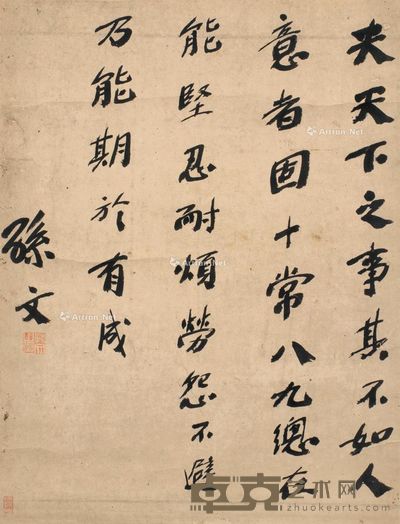 夫天下之事其不如人
意者固十常八九總在
能堅忍耐煩勞怨不避
乃能期於有成
孫文
Artron.Net
Artron.Net
Artron.Net
Artron.Net
卓克艺术网
www.zhuokearts.com